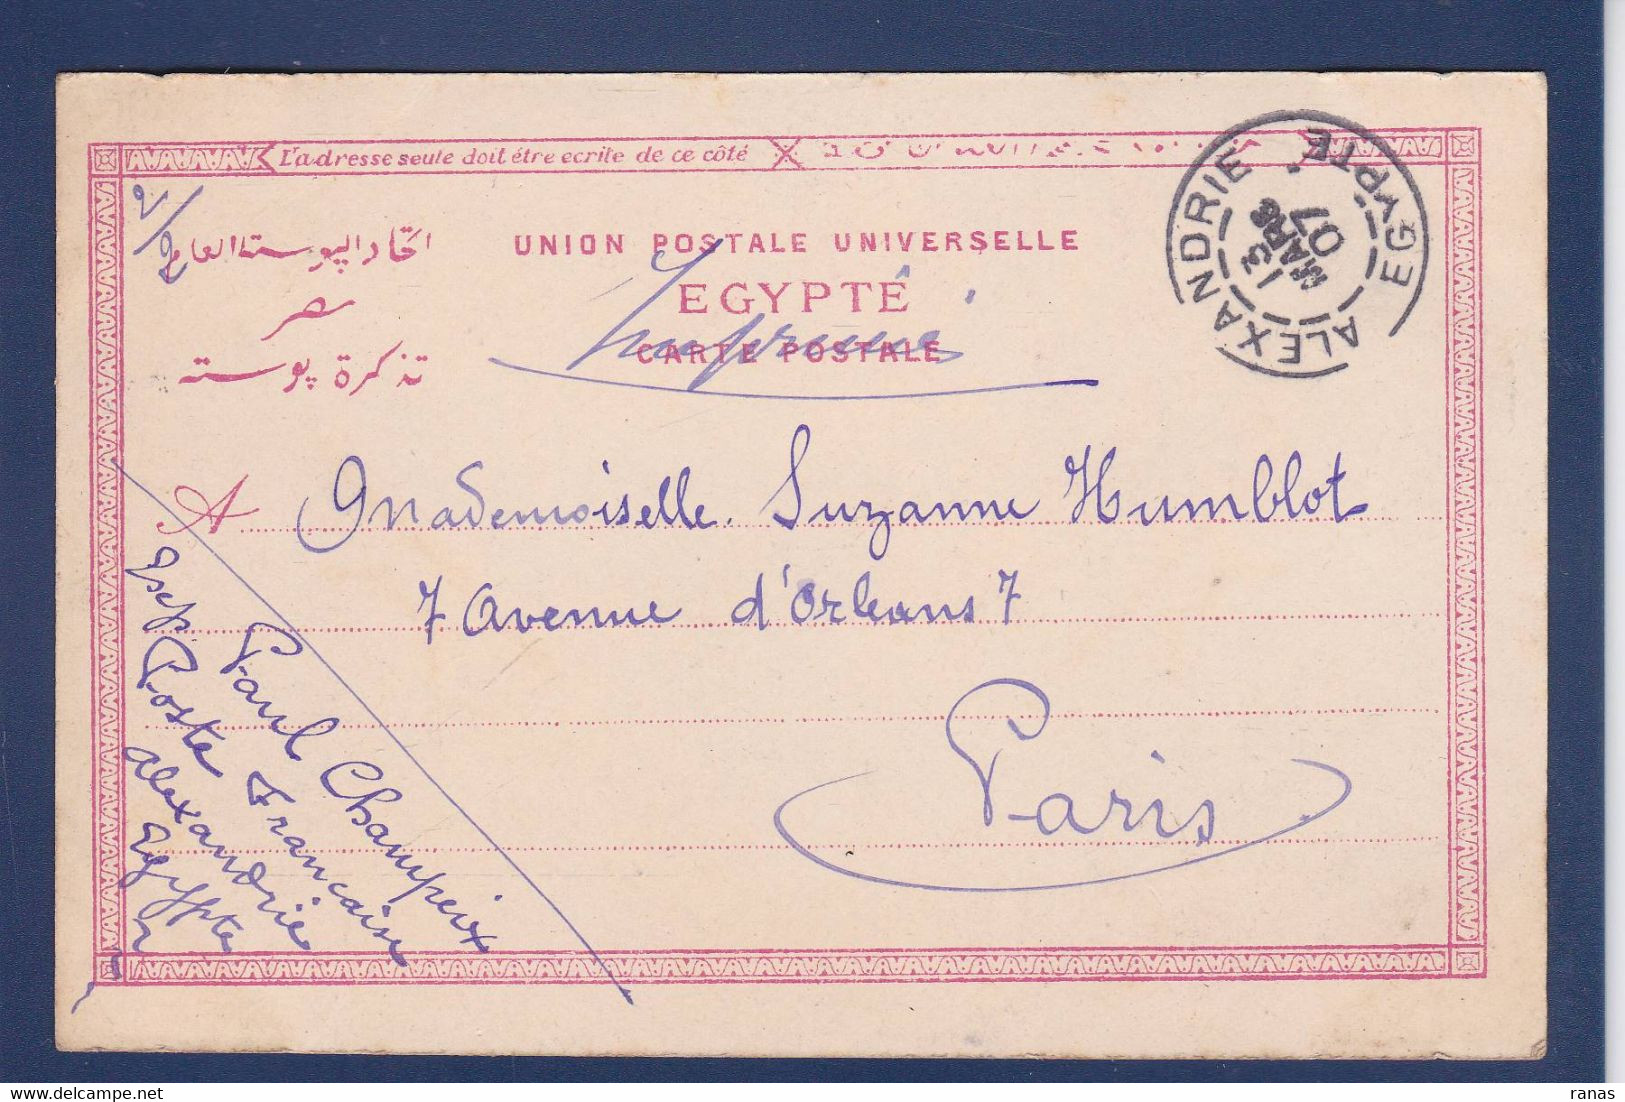 L'adresse seule doit être ecrite de ce côté
2/2
اتحاد البوسته العام
UNION POSTALE UNIVERSELLE
مصر
EGYPTE
Imprimé
تذكرة بوسته
CARTE POSTALE
ALEXANDRIE EGYPTE
13
MARS
07
A Mademoiselle Suzanne Humblot
7 Avenue d'Orleans 7
Paris
Paul Champeix
Poste Française
Alexandrie
Egypte
ranas